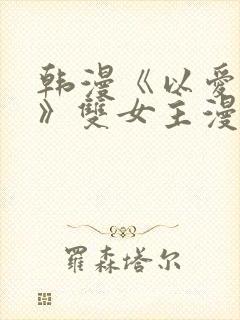 韩漫《以爱
》雙女主漫
羅森塔尔